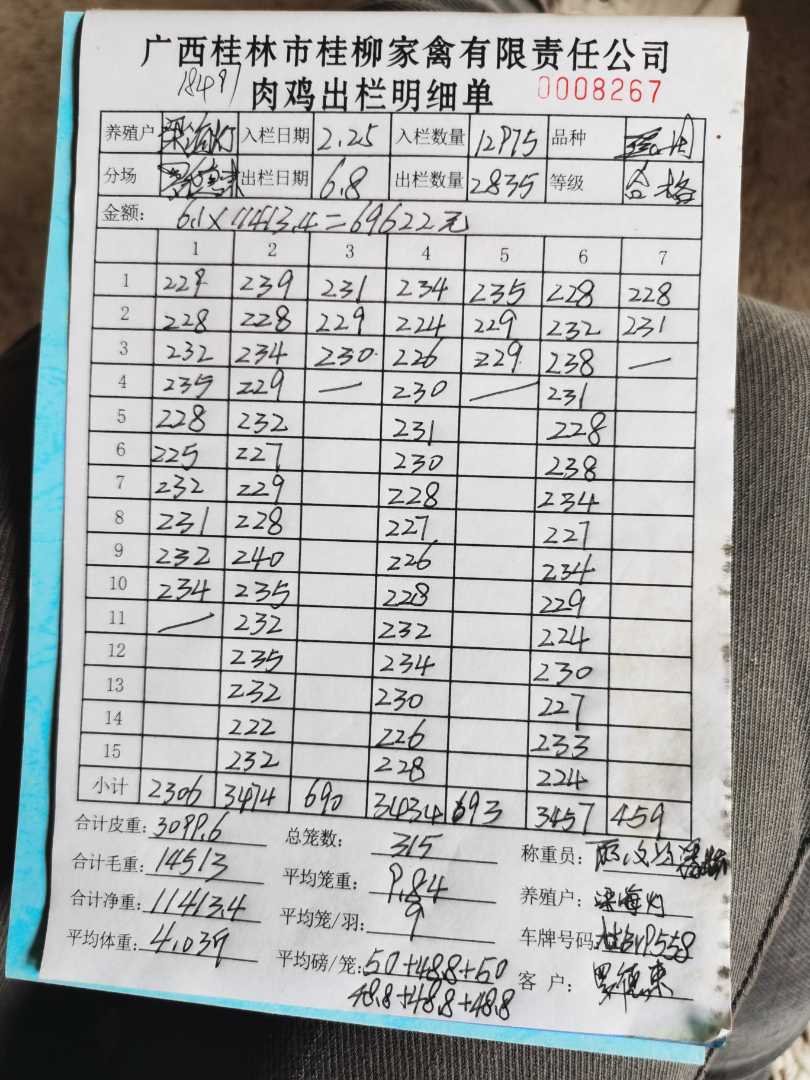 广西桂林市桂柳家禽有限责任公司
18497
肉鸡出栏明细单 0008267
养殖户 梁海灯 入栏日期 2.25 入栏数量 12975 品种
分场 出栏日期 6.8 出栏数量 2835 等级 合格
金额: 6.1×11413.4=69622元
1 2 3 4 5 6 7
1 229 239 231 234 235 228 228
2 228 228 229 224 229 232 231
3 232 234 230 226 229 238 —
4 235 229 — 230 — 231
5 228 232 231 228
6 225 227 230 238
7 232 229 228 234
8 231 228 227 227
9 232 240 226 234
10 234 235 228 229
11 — 232 232 224
12 235 234 230
13 232 230 227
14 222 226 233
15 232 228 224
小计 2306 3474 690 3434 693 3457 459
合计皮重: 3099.6 总笼数: 315 称重员:
合计毛重: 14513 平均笼重: 9.84 养殖户: 梁海灯
合计净重: 11413.4 平均笼/羽: 9 车牌号码:
平均体重: 4.03 平均磅/笼: 50+48.8+50 客户:
48.8+48.8+48.8